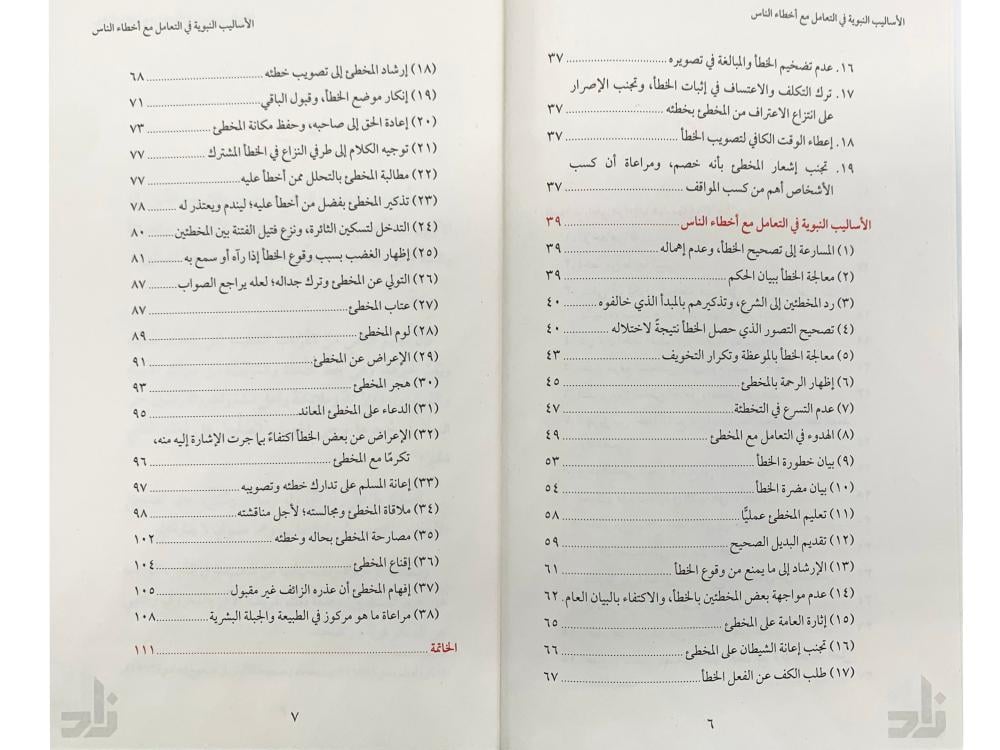 الأساليب النبوية في التعامل مع أخطاء الناس
١٦. عدم تضخيم الخطأ والمبالغة في تصويره ................ ٣٧
١٧. ترك التكلف والاعتساف في إثبات الخطأ، وتجنب الإصرار
على انتزاع الاعتراف من المخطئ بخطئه ................ ٣٧
١٨. إعطاء الوقت الكافي لتصويب الخطأ ................ ٣٧
١٩. تجنب إشعار المخطئ بأنه خصم، ومراعاة أن كسب
الأشخاص أهم من كسب المواقف ................ ٣٧
الأساليب النبوية في التعامل مع أخطاء الناس ................ ٣٩
(١) المسارعة إلى تصحيح الخطأ، وعدم إهماله ................ ٣٩
(٢) معالجة الخطأ ببيان الحكم ................ ٣٩
(٣) رد المخطئين إلى الشرع، وتذكيرهم بالمبدأ الذي خالفوه ......... ٤٠
(٤) تصحيح التصور الذي حصل الخطأ نتيجةً لاختلاله ............ ٤٠
(٥) معالجة الخطأ بالموعظة وتكرار التخويف ................ ٤٣
(٦) إظهار الرحمة بالمخطئ ................ ٤٥
(٧) عدم التسرع في التخطئة ................ ٤٧
(٨) الهدوء في التعامل مع المخطئ ................ ٤٩
(٩) بيان خطورة الخطأ ................ ٥٣
(١٠) بيان مضرة الخطأ ................ ٥٤
(١١) تعليم المخطئ عمليًّا ................ ٥٨
(١٢) تقديم البديل الصحيح ................ ٥٩
(١٣) الإرشاد إلى ما يمنع من وقوع الخطأ ................ ٦١
(١٤) عدم مواجهة بعض المخطئين بالخطأ، والاكتفاء بالبيان العام. ٦٢
(١٥) إثارة العامة على المخطئ ................ ٦٥
(١٦) تجنب إعانة الشيطان على المخطئ ................ ٦٦
(١٧) طلب الكف عن الفعل الخطأ ................ ٦٧
٦
زاد
الأساليب النبوية في التعامل مع أخطاء الناس
(١٨) إرشاد المخطئ إلى تصويب خطئه ................ ٦٨
(١٩) إنكار موضع الخطأ، وقبول الباقي ................ ٧١
(٢٠) إعادة الحق إلى صاحبه، وحفظ مكانة المخطئ ................ ٧٣
(٢١) توجيه الكلام إلى طرفي النزاع في الخطأ المشترك ................ ٧٧
(٢٢) مطالبة المخطئ بالتحلل ممن أخطأ عليه ................ ٧٧
(٢٣) تذكير المخطئ بفضل من أخطأ عليه؛ ليندم ويعتذر له ......... ٧٨
(٢٤) التدخل لتسكين الثائرة، ونزع فتيل الفتنة بين المخطئين ........ ٨٠
(٢٥) إظهار الغضب بسبب وقوع الخطأ إذا رآه أو سمع به .......... ٨١
(٢٦) التولي عن المخطئ وترك جداله؛ لعله يراجع الصواب ......... ٨٧
(٢٧) عتاب المخطئ ................ ٨٧
(٢٨) لوم المخطئ ................ ٨٩
(٢٩) الإعراض عن المخطئ ................ ٩١
(٣٠) هجر المخطئ ................ ٩٣
(٣١) الدعاء على المخطئ المعاند ................ ٩٥
(٣٢) الإعراض عن بعض الخطأ اكتفاءً بما جرت الإشارة إليه منه،
تكرمًا مع المخطئ ................ ٩٦
(٣٣) إعانة المسلم على تدارك خطئه وتصويبه ................ ٩٧
(٣٤) ملاقاة المخطئ ومجالسته؛ لأجل مناقشته ................ ٩٨
(٣٥) مصارحة المخطئ بحاله وخطئه ................ ١٠٢
(٣٦) إقناع المخطئ ................ ١٠٤
(٣٧) إفهام المخطئ أن عذره الزائف غير مقبول ................ ١٠٥
(٣٨) مراعاة ما هو مركوز في الطبيعة والجبلة البشرية ................ ١٠٨
الخاتمة ................ ١١١
٧
زاد